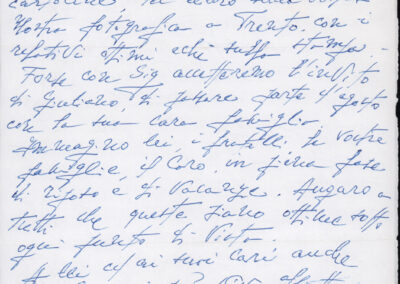 cartoline, di
Mostra fotografica a Trento. con i
relativi ottimi echi sulla stampa -
Forse con Sig accetteremo l'invito
di Giuliano, di passare parte d'agosto
con la sua cara famiglia
Immagino lei, i fratelli, le vostre
famiglie, il Coro. in piena fase
di riposo e di Vacanze. Auguro a
tutti che queste siano ottime sotto
ogni punto di Vista.
A lei ed ai suoi cari anche